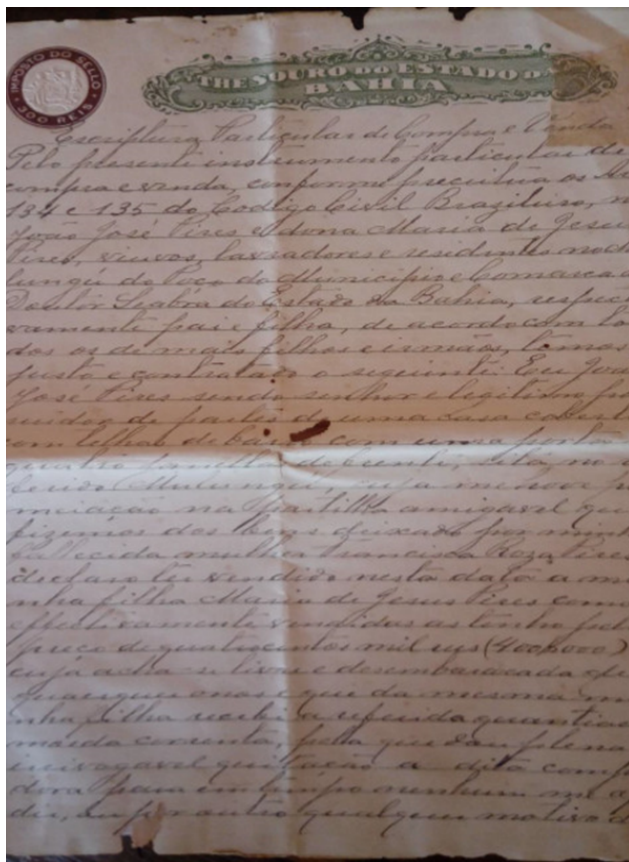 IMPOSTO DO SELLO
300 REIS
THESOURO DO ESTADO DA
BAHIA
Escriptura Particular de Compra e Venda
Pelo presente instrumento particular de
compra e venda, conforme preceitua os
134 e 135 do Codigo Civil Brazileiro, n
João José Pires e dona Maria de Jesu
Pires, viuvos, lavradores e residentes no
lungú do Poço do Municipio e Comarca d
Doutor Seabra do Estado da Bahia, respec
vamente pai e filha, de acordo com to
dos os de mais filhos e irmãos, temos
justo e contratado o seguinte: Eu Joa
José Pires sendo senhor e legitimo po
suidor de parte de uma casa cobert
com telhas de barro com uma porta
quatro janellas de frente, sita no
ferido Mulungú, cuja me
meiação na partilha amigavel que
fizemos dos bens deixado por minh
fallecida mulher Francisca Roza Pires
declaro ter vendido nesta data a mi
nha filha Maria de Jesus Pires como
effectivamente vendidas as tenho pelo
preço de quatrocentos mil reis (400$000)
cuja acha se livre e desembaraçada de
quaesquer onus e que da mesma mi
nha filha recebi a referida quantia
moeda corrente, pelo que dou plena
irrevogavel quitação a dita comp
dora para em tempo nenhum me
dir, ou por outro qualquer motivo